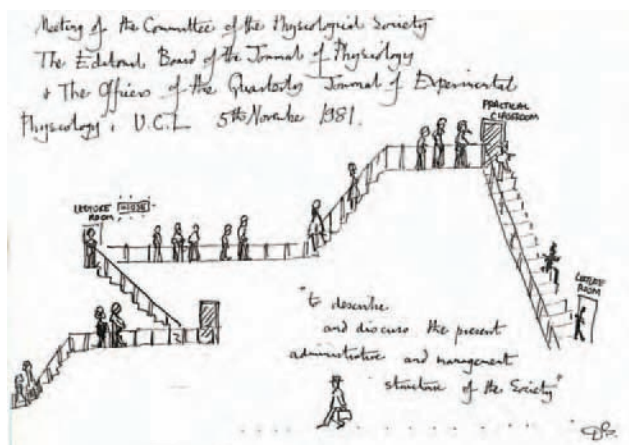 Meeting of the Committee of the Physiological Society
The Editorial Board of the Journal of Physiology
+ The Officers of the Quarterly Journal of Experimental
Physiology, U.C.L 5th November 1981.
PRACTICAL
CLASSROOM
LECTURE
ROOM
LECTURE
ROOM
"to describe
and discuss the present
administrative and management
structure of the Society"